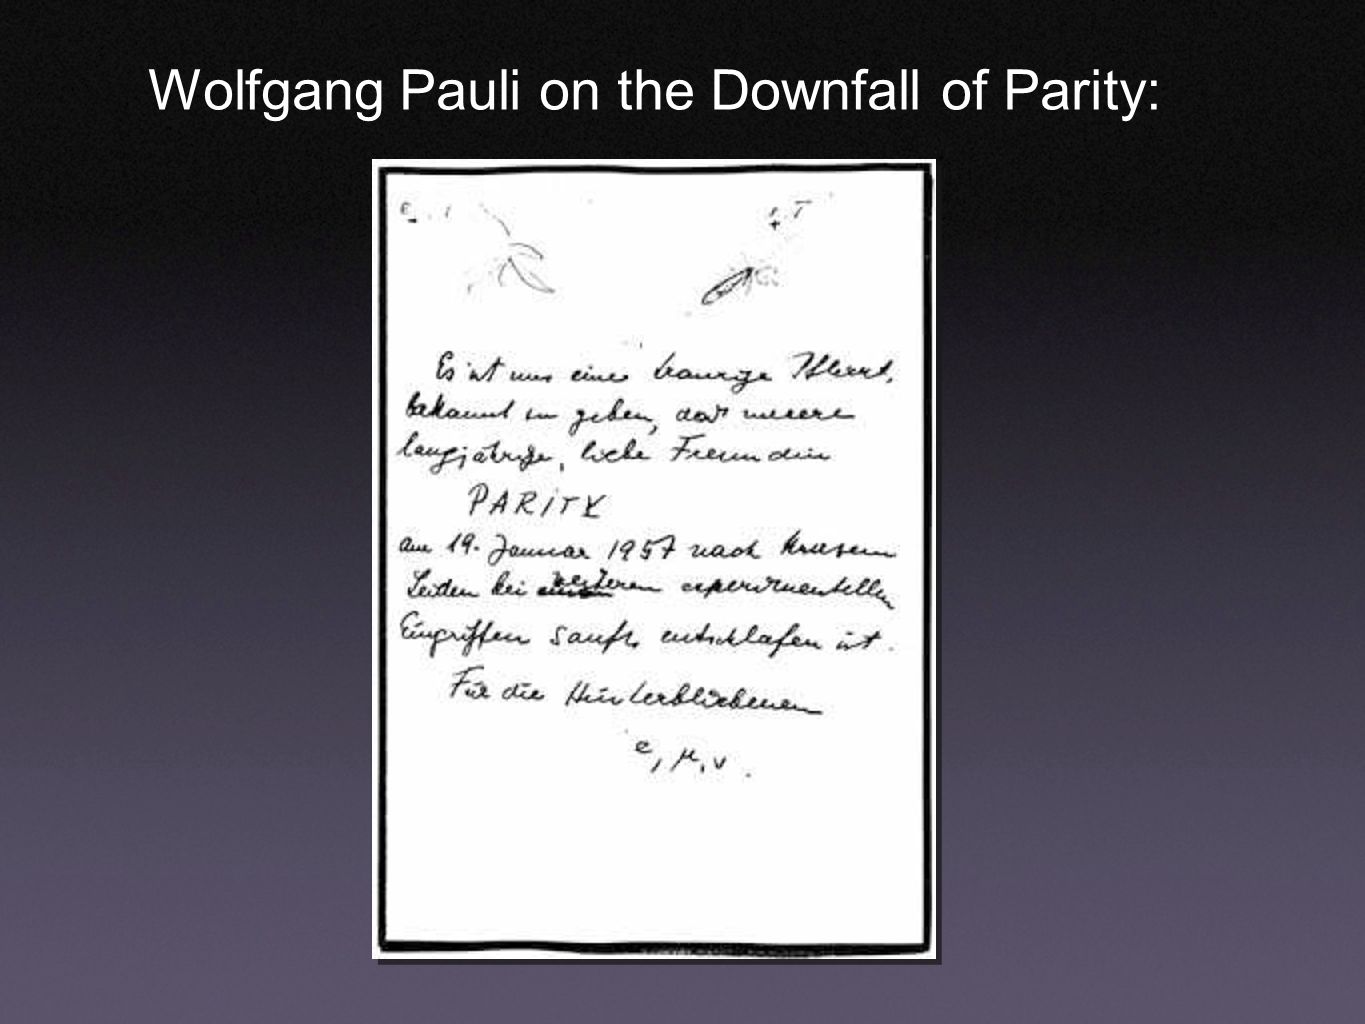 Wolfgang Pauli on the Downfall of Parity:
Es ist uns eine traurige Pflicht,
bekannt zu geben, daß unsere
langjährige, liebe Freundin
PARITY
am 19. Januar 1957 nach kurzem
Leiden bei weiteren experimentellen
Eingriffen sanft entschlafen ist.
Für die Hinterbliebenen
e, μ, ν.